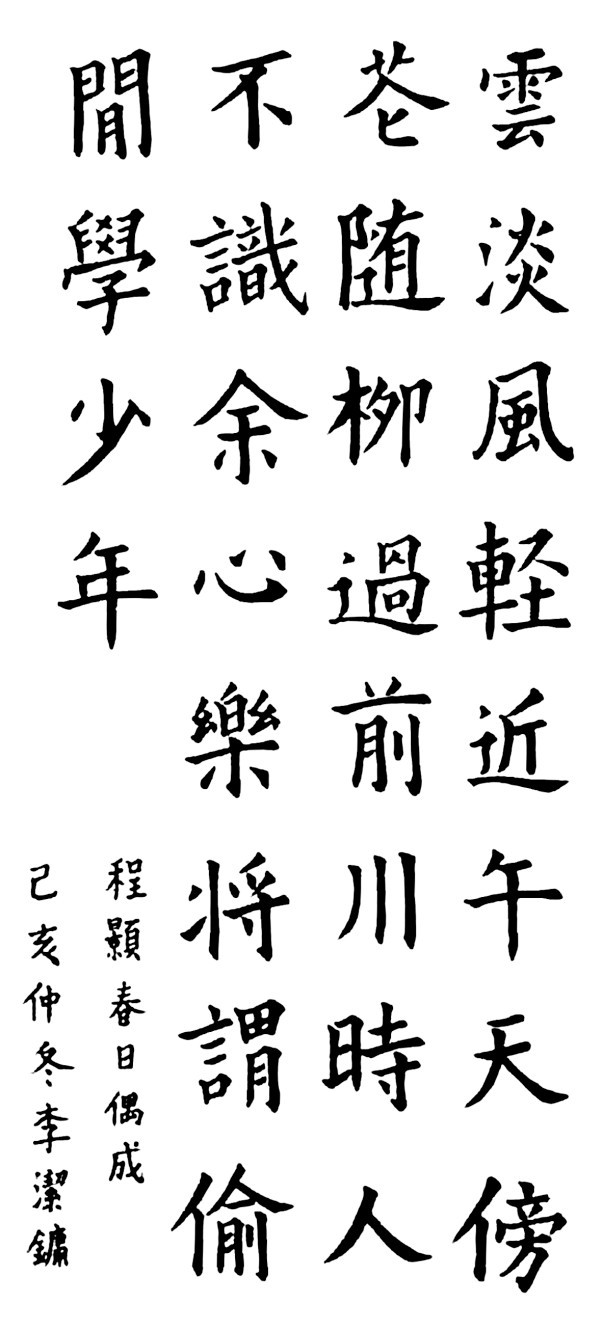 雲淡風軽近午天傍
花随柳過前川時人
不識余心樂将謂偷
閒學少年
程顥春日偶成
己亥仲冬李潔鏞